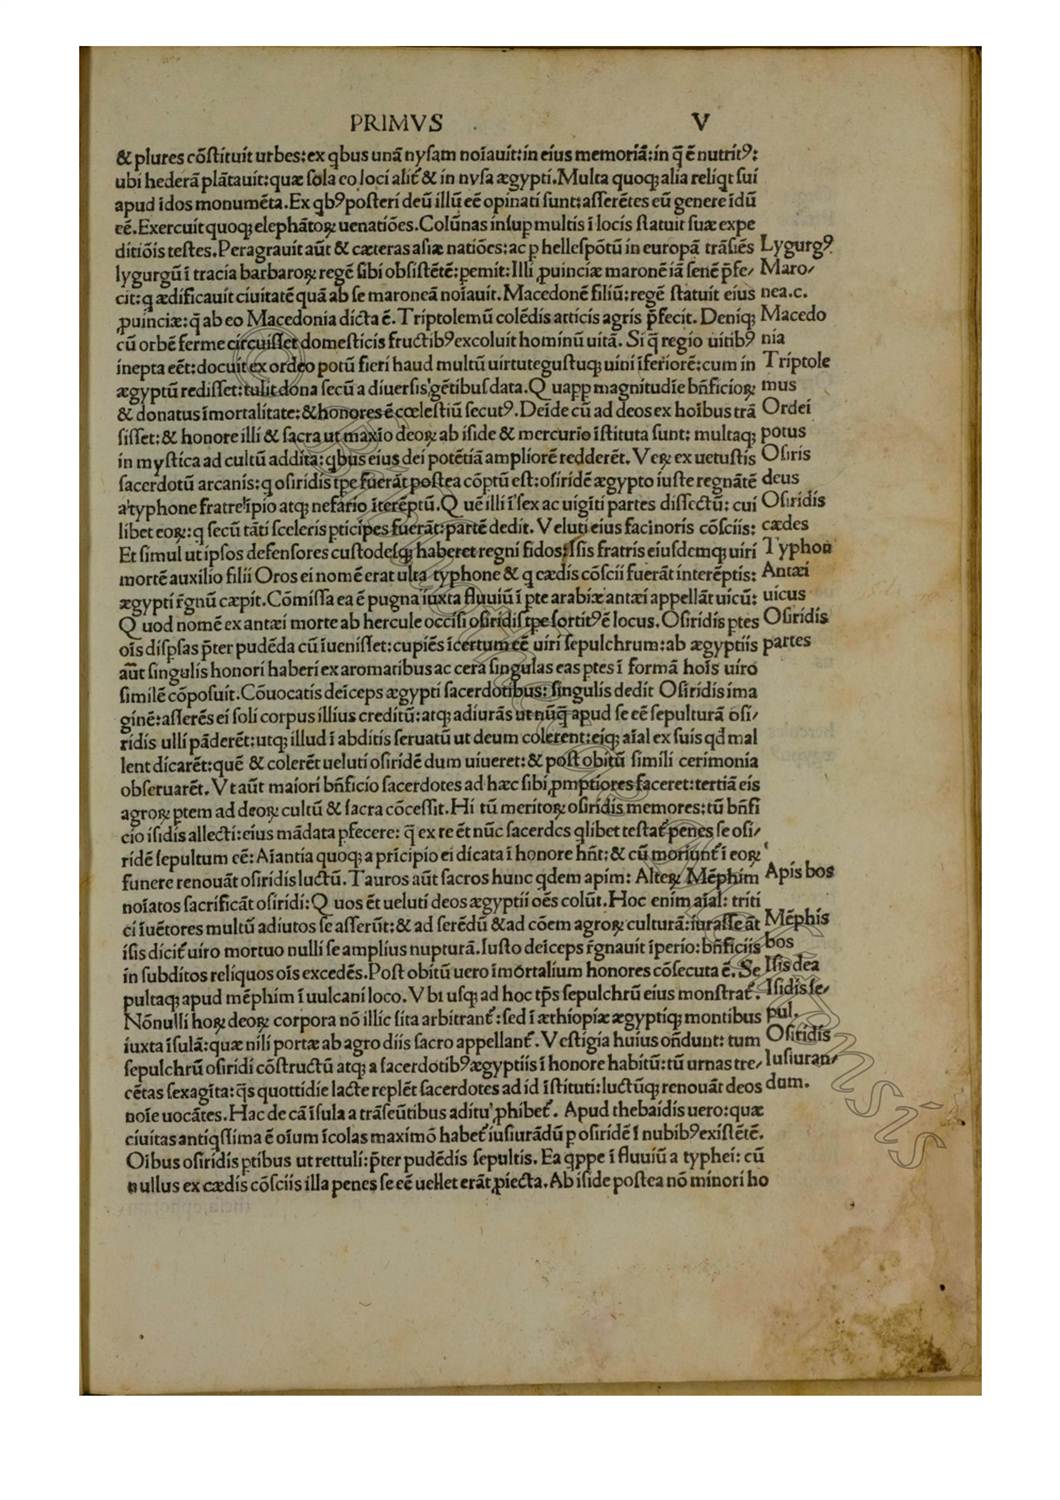 PRIMVS V
& plures cōſtituit urbes: ex qbus unā nyſam noīauit: in eius memoriā: in q̄ ē nutritꝰ:
ubi hederā plātauit: quæ ſola eo loci alit᷑ & in nyſa ægypti. Multa quoqꝫ alia reliqt ſui
apud īdos monumēta. Ex qbꝰ poſteri deū illū eē opinati ſunt: aſſerētes eū genere īdū
eē. Exercuit quoqꝫ elephātoꝝ uenatiōes. Colūnas inſup multis ī locis ſtatuit ſuæ expe
ditiōis teſtes. Peragrauit aūt & cæteras aſiæ natiōes: ac p helleſpōtū in europā trāſiēs
lygurgū ī tracia barbaroꝝ regē ſibi obſiſtētē: pemit: Illi ꝓuinciæ maronē iā ſenē p̄fe⸗
cit: q ædificauit ciuitatē quā ab ſe maroneā noīauit. Macedonē filiū: regē ſtatuit eius
ꝓuinciæ: q̄ ab eo Macedonia dicta ē. Triptolemū colēdis atticis agris p̄fecit. Deniqꝫ
cū orbē ferme circuiſſet domeſticis fructibꝰ excoluit hominū uitā. Si q̄ regio uitibꝰ
inepta eēt: docuit ex ordeo potū fieri haud multū uirtute guſtuqꝫ uini īferiorē: cum in
ægyptū rediſſet: tulit dona ſecū a diuerſis gētibuſ data. Q uapp magnitudīe bn̄ficioꝝ
& donatus īmortalitate: & honores ē cœleſtiū ſecutꝰ. Deīde cū ad deos ex hoībus trā
ſiſſet: & honore illi & ſacra ut maxīo deoꝝ ab iſide & mercurio īſtituta ſunt: multaqꝫ
in myſtica ad cultū addita: qbus eius dei potētiā ampliorē redderēt. Veꝝ ex uetuſtis
ſacerdotū arcanis: q oſiridis tpe fuerāt poſtea cōptū eſt: oſiridē ægypto iuſte regnātē
a typhone fratre īpio atqꝫ nefario īterēptū. Q uē illi ī ſex ac uigīti partes diſſectū: cui
libet eoꝝ: q ſecū tāti ſceleris pticipes fuerāt: partē dedit. Veluti eius facinoris cōſciis:
Et ſimul ut ipſos defenſores cuſtodeſqꝫ haberet regni fidos: Iſis fratris eiuſdemqꝫ uiri
mortē auxilio filii Oros ei nomē erat ulta typhone & q cædis cōſcii fuerāt interēptis:
ægypti r̄gnū cæpit. Cōmiſſa ea ē pugna iuxta fluuiū ī pte arabiæ antæi appellāt uicū:
Q uod nomē ex antæi morte ab hercule occiſi oſiridiſ tpe ſortitꝰ ē locus. Oſiridis ptes
oīs diſpſas p̄ter pudēda cū īueniſſet: cupiēs īcertum eē uiri ſepulchrum: ab ægyptiis
aūt ſingulis honori haberi ex aromatibus ac cera ſingulas eas ptes ī formā hoīs uiro
ſimilē cōpoſuit. Cōuocatis deīceps ægypti ſacerdotibus: ſingulis dedit Oſiridis ima
ginē: aſſerēs ei ſoli corpus illius creditū: atqꝫ adiurās ut nūq̄ apud ſe eē ſepulturā oſi⸗
ridis ulli pāderēt: utqꝫ illud ī abditis ſeruatū ut deum colerent: eiqꝫ aīal ex ſuis qd mal
lent dicarēt: quē & colerēt ueluti oſiridē dum uiueret: & poſt obitū ſimili cerimonia
obſeruarēt. Vt aūt maiori bn̄ficio ſacerdotes ad hæc ſibi ꝓmptiores faceret: tertiā eis
agroꝝ ptem ad deoꝝ cultū & ſacra cōceſſit. Hi tū meritoꝝ oſiridis memores: tū bn̄fi
cio iſidis allecti: eius mādata pfecere: q̄ ex re ēt nūc ſacerdos qlibet teſtat᷑ penes ſe oſi⸗
ridē ſepultum eē: Aīantia quoqꝫ a prīcipio ei dicata ī honore hn̄t: & cū moriunt᷑ ī eoꝝ
funere renouāt oſiridis luctū. Tauros aūt ſacros hunc qdem apim: Alteꝝ Mēphim
noīatos ſacrificāt oſiridi: Q uos ēt ueluti deos ægyptii oēs colūt. Hoc enim aīal: triti
ci īuētores multū adiutos ſe aſſerūt: & ad ſerēdū & ad cōem agroꝝ culturā: iuraſſe āt
iſis dicit᷑ uiro mortuo nulli ſe amplius nupturā. Iuſto deīceps r̄gnauit īperio: bn̄ficiis
in ſubditos reliquos oīs excedēs. Poſt obitū uero īmortalium honores cōſecuta ē. Se
pultaqꝫ apud mēphim ī uulcani loco. Vbi uſqꝫ ad hoc tp̄s ſepulchrū eius monſtrat᷑.
Nōnulli hoꝝ deoꝝ corpora nō illic ſita arbitrant᷑: ſed ī æthiopiæ ægyptiqꝫ montibus
iuxta īſulā: quæ nili portæ ab agro diis ſacro appellant᷑. Veſtigia huius on̄dunt: tum
ſepulchrū oſiridi cōſtructū atqꝫ a ſacerdotibꝰ ægyptiis ī honore habitū: tū urnas tre⸗
cētas ſexagīta: q̄s quottidie lacte replēt ſacerdotes ad id īſtituti: luctūqꝫ renouāt deos
noīe uocātes. Hac de cā īſula a trāſeūtibus aditu ꝓhibet᷑. Apud thebaidis uero: quæ
ciuitas antiqſſima ē oīum īcolas maximō habet᷑ iuſiurādū p oſiridē ī nubibꝰ exiſtētē.
Oībus oſiridis ptibus ut rettuli: p̄ter pudēdis ſepultis. Ea qppe ī fluuiū a typhei: cū
nullus ex cædis cōſciis illa penes ſe eē uellet erāt ꝓiecta. Ab iſide poſtea nō minori ho
Lygurgꝰ.
Maro⸗
nea.c.
Macedo
nia
Triptole
mus
Ordei
potus
Oſiris
deus
Oſiridis
cædes
Typhon
Antæi
uicus
Oſiridis
partes
Apis bos
Mēphis
bos
Iſis dea
Iſidis ſe⸗
pul.
Oſiridis
Iuſiuran⸗
dum.